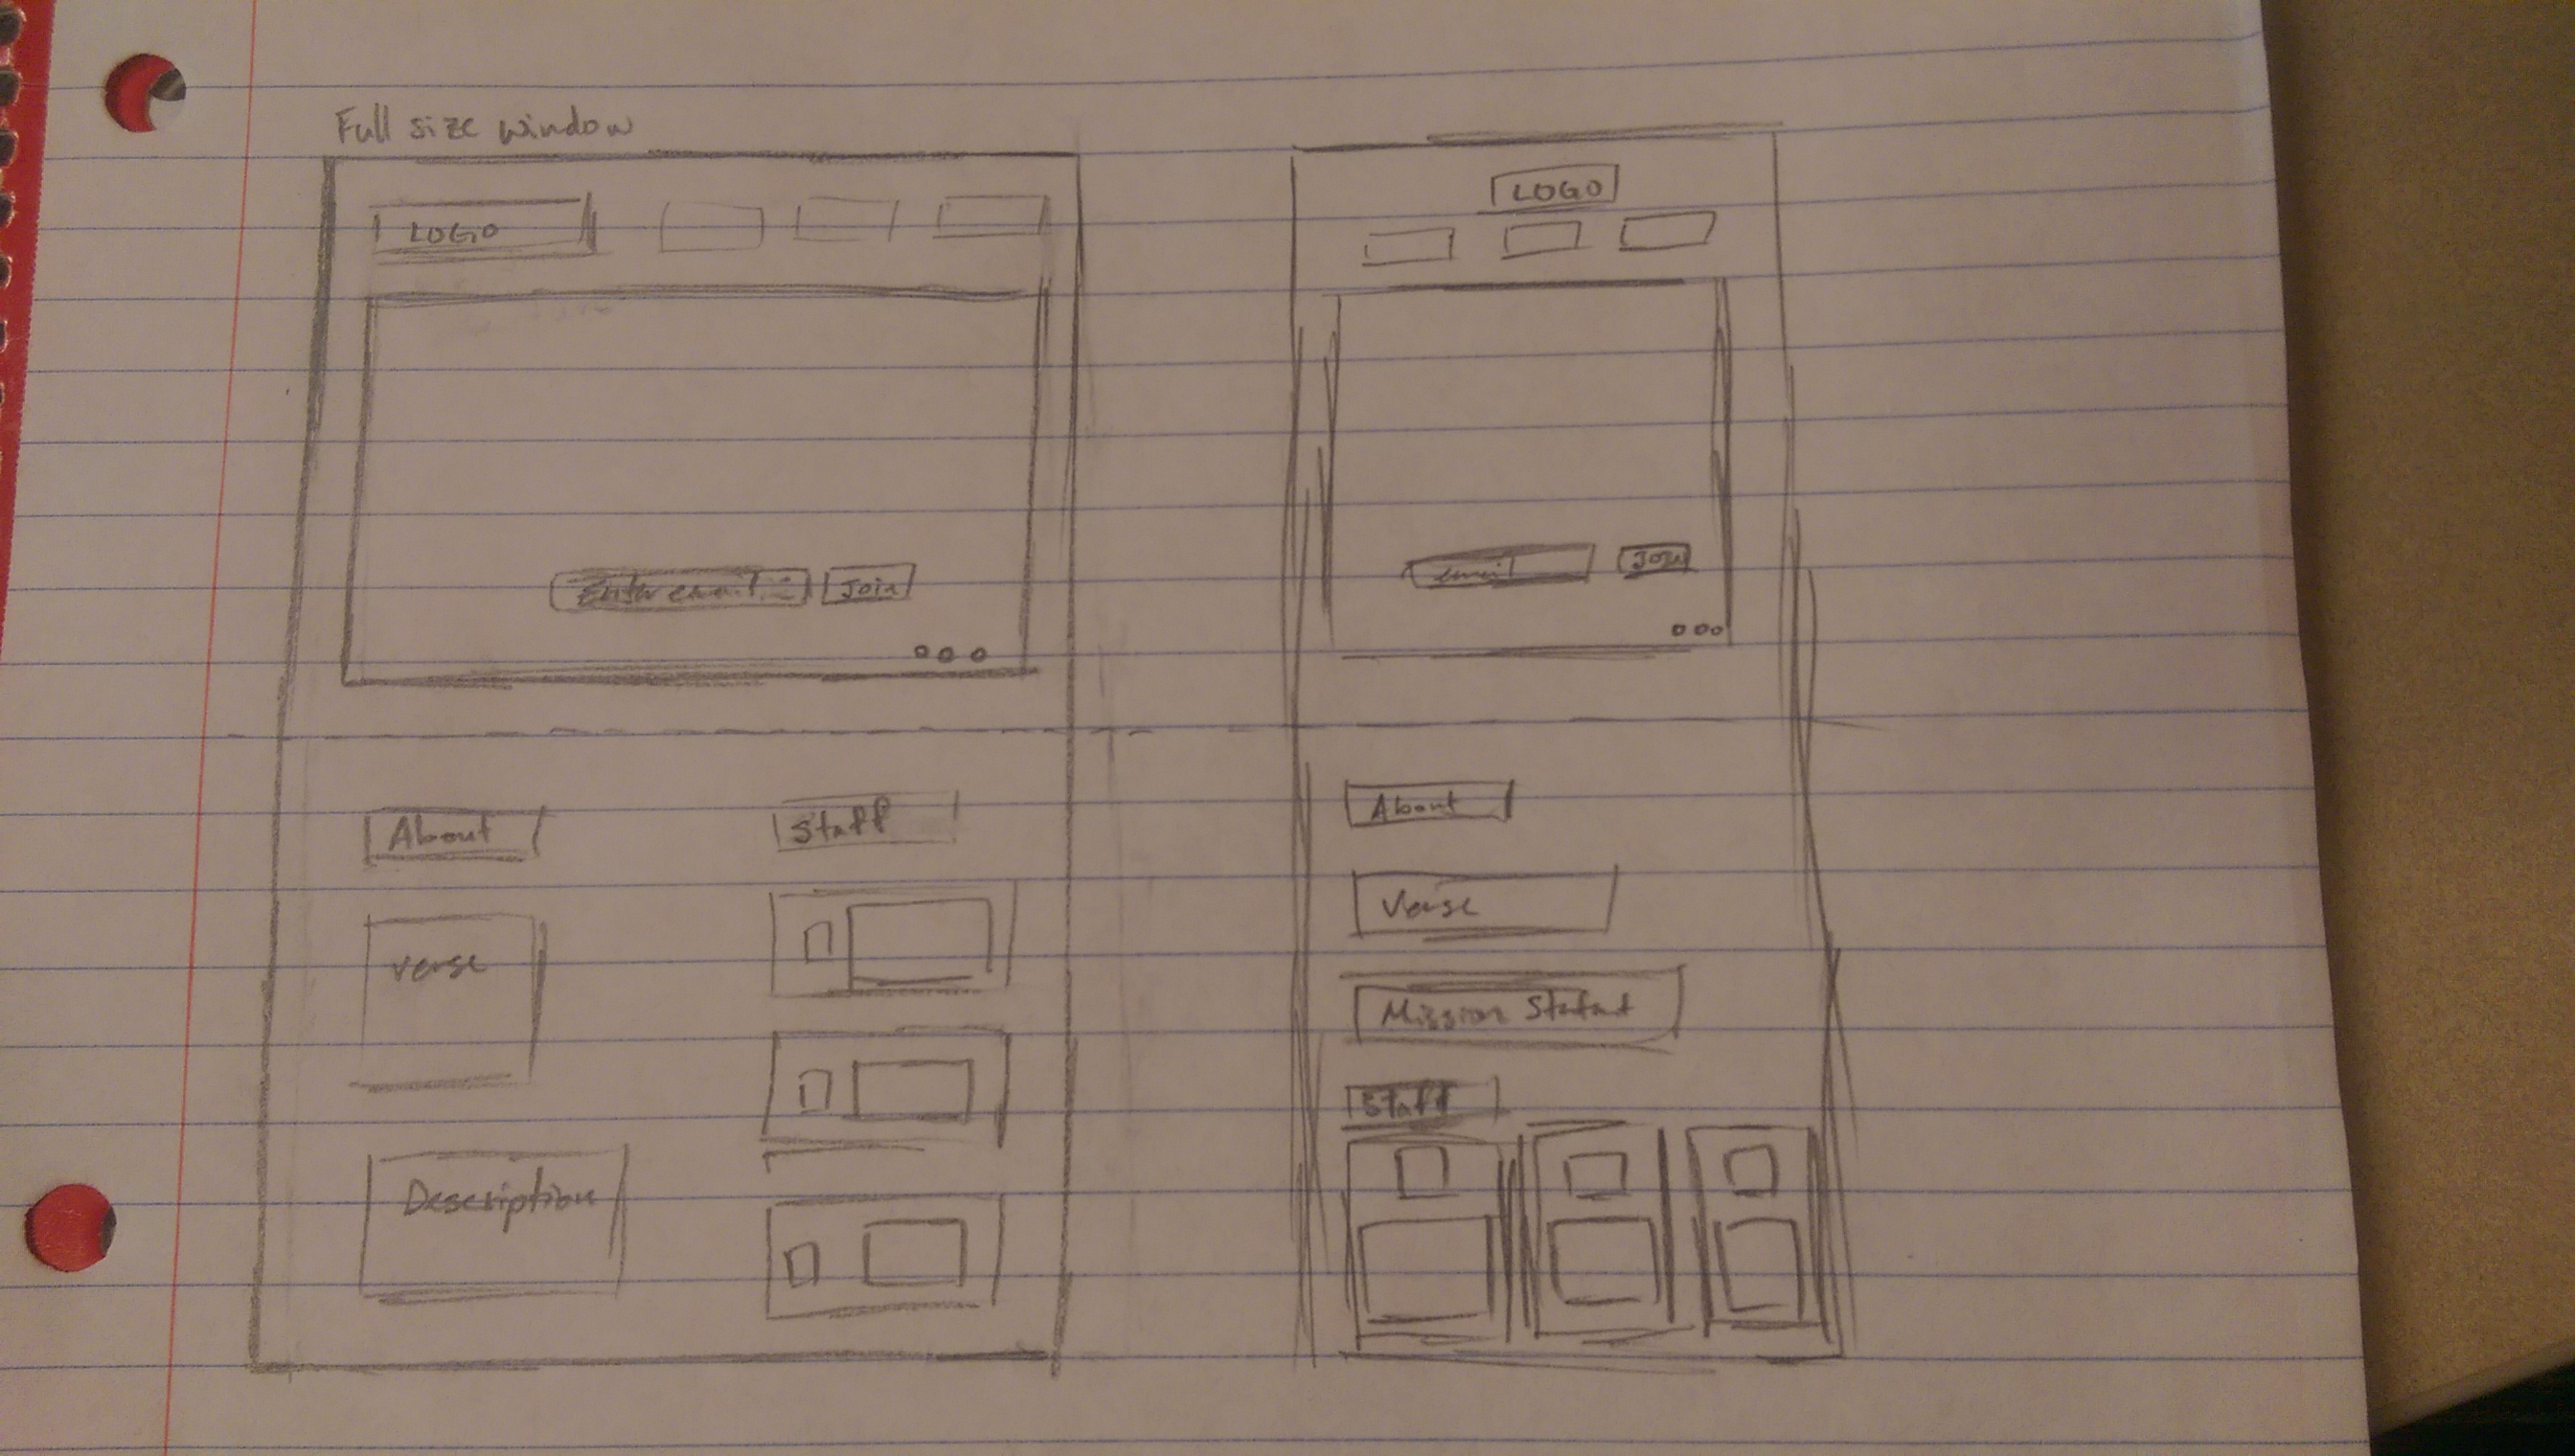 Full size window
LOGO
Enter email...
Join
About
Staff
Verse
Description
LOGO
email
Join
About
Verse
Mission Statmt
Staff